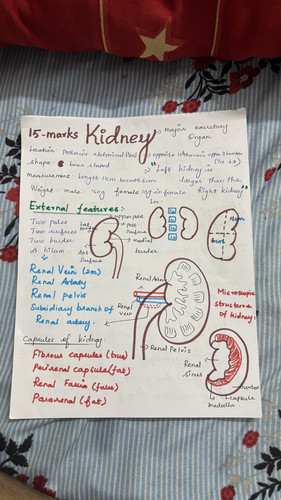 15-marks Kidney → Major excretory
Organ
Location: Posterior abdominal wall → opposite
shape: bean shaped → Left kidney is
measurement: length 11cm breadth 6cm longer than the
Weight: male 150g female Right kidney
External features:
Two poles
Two surfaces
Two border
A hilum
upper pole
surface
medial
border
Hilum
Renal Vein
Renal Artery
Renal pelvis
Subsidiary branch of
Renal artery.
Renal
vein
Renal Pelvis
Microscopic
structure
of kidney.
Capsules of kidney
Fibrous capsules (true)
Perirenal capsule (fat)
Renal Fascia (false)
Pararenal (fat)
Renal
sinus
capsule
medulla